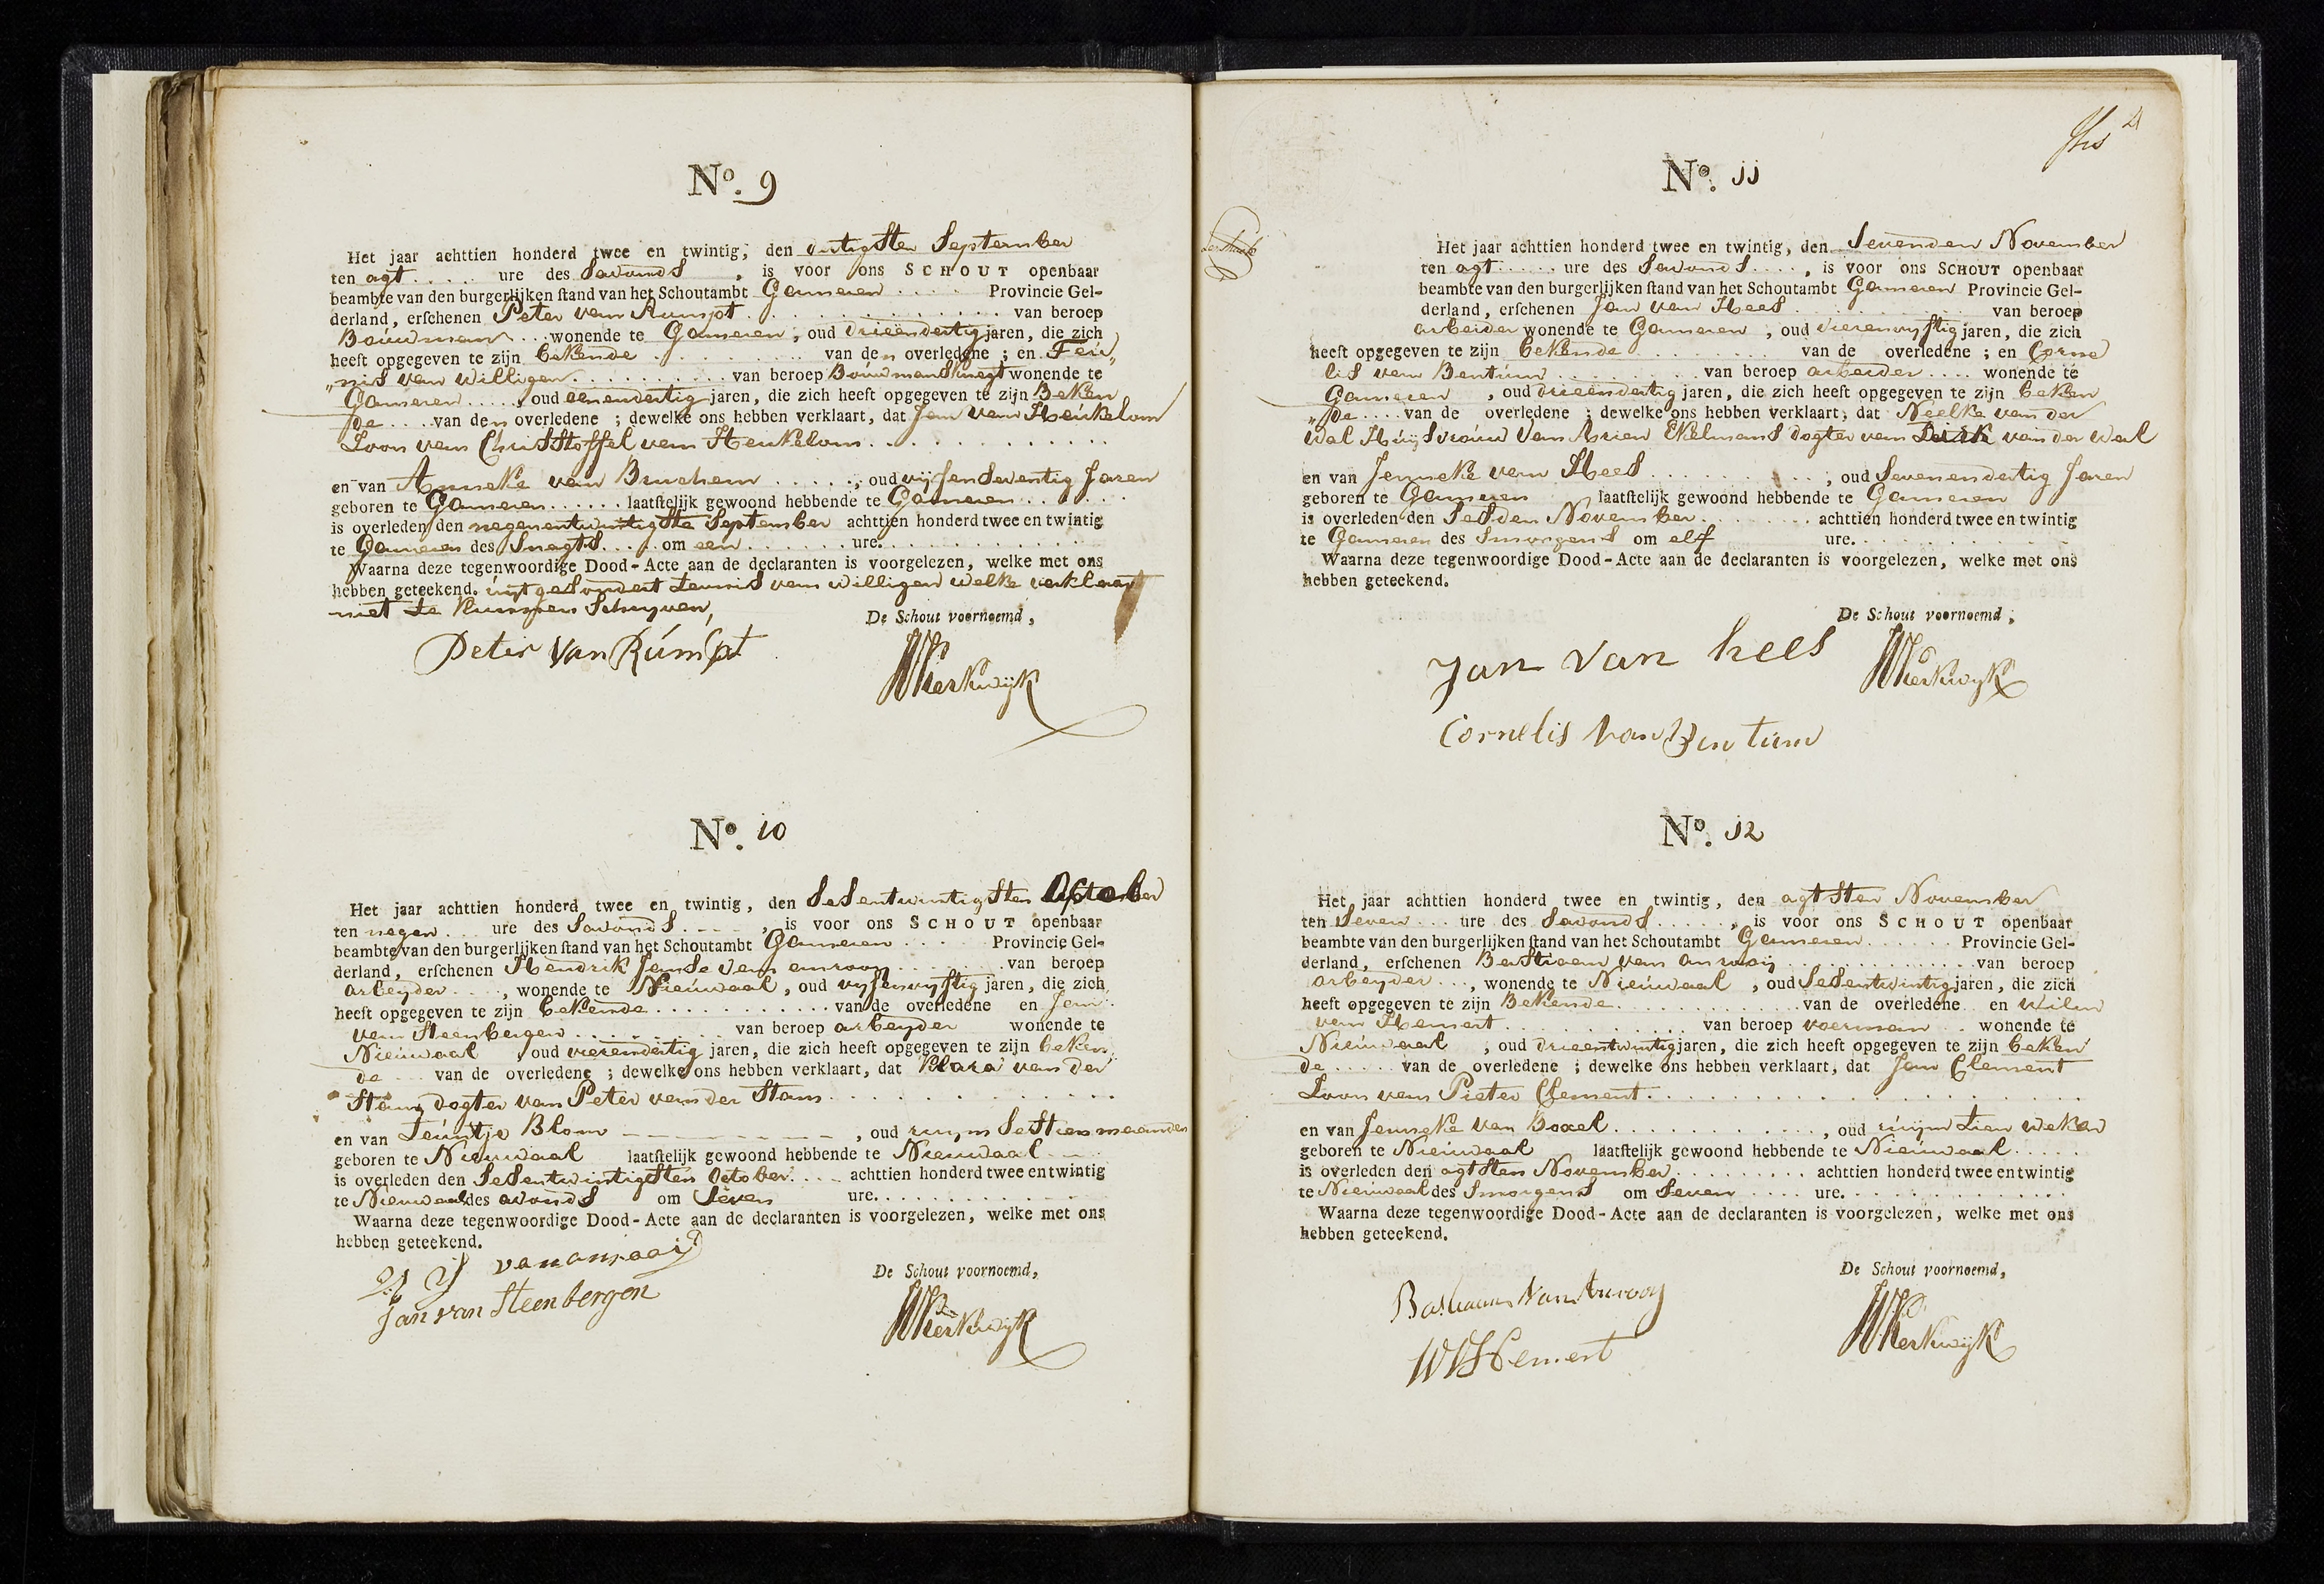 No. 9
Het jaar achttien honderd twee en twintig, den dertigsten September
ten agt .... ure des Savonds , is voor ons SCHOUT openbaar
beambte van den burgerlijken stand van het Schoutambt Gameren .... Provincie Gel-
derland, erschenen Peter van Rumpt ........ van beroep
Bouwman ... wonende te Gameren, oud drieendertig jaren, die zich
heeft opgegeven te zijn bekende ........ van den overledene ; en Teu„
„nis van Willigen ........ van beroep Bouwmansknegt wonende te
Gameren ....., oud eenendertig jaren, die zich heeft opgegeven te zijn Beken
de .... van den overledene ; dewelke ons hebben verklaart, dat Jan van Heukelom
Soon van Christoffel van Heukelom ........
en van Anneke van Bruchem ....., oud vijfenseventig Jaren
geboren te Gameren ...... laatstelijk gewoond hebbende te Gameren ......
is overleden den negenentwintigste September achttien honderd twee en twintig
te Gameren des Snagts .... om een ...... ure. ........
Waarna deze tegenwoordige Dood-Acte aan de declaranten is voorgelezen, welke met ons
hebben geteekend. uijtgesondert Teunis van Willigen welke verklaart
niet te kunnen Schryven,
De Schout voornoemd,
Peter Van Rúmpt
Kerkwijk
No. 10
Het jaar achttien honderd twee en twintig, den Sesentwintigsten October
ten negen ... ure des Savonds ...., is voor ons SCHOUT openbaar
beambte van den burgerlijken stand van het Schoutambt Gameren .... Provincie Gel-
derland, erschenen Hendrik Janse van anrooy ........ van beroep
arbeyder ...., wonende te Nieuwaal, oud vyfenvyftig jaren, die zich
heeft opgegeven te zijn bekende ........ van de overledene en Jan
van Steenbergen ........ van beroep arbeyder wonende te
Nieuwaal , oud vierendertig jaren, die zich heeft opgegeven te zijn beken
de .... van de overledene ; dewelke ons hebben verklaart, dat Klara van der
Stam dogter van Peter van der Stam ........
en van Teuntje Blom ........, oud ruym Sestien maanden
geboren te Nieuwaal laatstelijk gewoond hebbende te Nieuwaal ...
is overleden den Sesentwintigsten October .... achttien honderd twee en twintig
te Nieuwaal des avonds om Seven ure. ........
Waarna deze tegenwoordige Dood-Acte aan de declaranten is voorgelezen, welke met ons
hebben geteekend.
De Schout voornoemd,
van anraaij
Jan van Steenbergen
Kerkwijk
No. 11
Het jaar achttien honderd twee en twintig, den Sevenden November
ten agt ..... ure des Savonds ...., is voor ons SCHOUT openbaar
beambte van den burgerlijken stand van het Schoutambt Gameren Provincie Gel-
derland, erschenen Jan van Hees ........ van beroep
arbeider wonende te Gameren , oud vierenvyftig jaren, die zich
heeft opgegeven te zijn bekende ........ van de overledene ; en Corne
lis van Bentum ........ van beroep arbeider .... wonende te
Gameren , oud drieendertig jaren, die zich heeft opgegeven te zijn beken
„de .... van de overledene ; dewelke ons hebben verklaart, dat Neelke van der
Wal Huijsvrouw Van Arien Ekelmans dogter van Dirk van der Wal
en van Jenneke van Hees ........ ; oud Sevenendertig Jaren
geboren te Gameren laatstelijk gewoond hebbende te Gameren
is overleden den Sesden November ........ achttien honderd twee en twintig
te Gameren des Smorgens om elf ure. ........
Waarna deze tegenwoordige Dood-Acte aan de declaranten is voorgelezen, welke met ons
hebben geteekend.
De Schout voornoemd,
Jan van hees
Kerkwijk
Cornelis van Bentum
No. 12
Het jaar achttien honderd twee en twintig, den agtsten November
ten Seven ... ure des Savonds ....., is voor ons SCHOUT openbaar
beambte van den burgerlijken stand van het Schoutambt Gameren ...... Provincie Gel-
derland, erschenen Bastiaan van anrooij ........ van beroep
arbeyder ..., wonende te Nieuwaal , oud Sesentwintig jaren, die zich
heeft opgegeven te zijn Bekende ........ van de overledene en Wilm
van Hemert ........ van beroep voerman . wonende te
Nieuwaal , oud drieentwintig jaren, die zich heeft opgegeven te zijn beken
de ..... van de overledene ; dewelke ons hebben verklaart, dat Jan Clement
Soon van Pieter Clement ........
en van Jenneke van Boxel ........, oud ruijm tien weken
geboren te Nieuwaal laatstelijk gewoond hebbende te Nieuwaal .....
is overleden den agtsten November ........ achttien honderd twee en twintig
te Nieuwaal des Smorgens om Seven .... ure. ........
Waarna deze tegenwoordige Dood-Acte aan de declaranten is voorgelezen, welke met ons
hebben geteekend.
De Schout voornoemd,
Bastiaan Van Anrooy
WVHemert
Kerkwijk